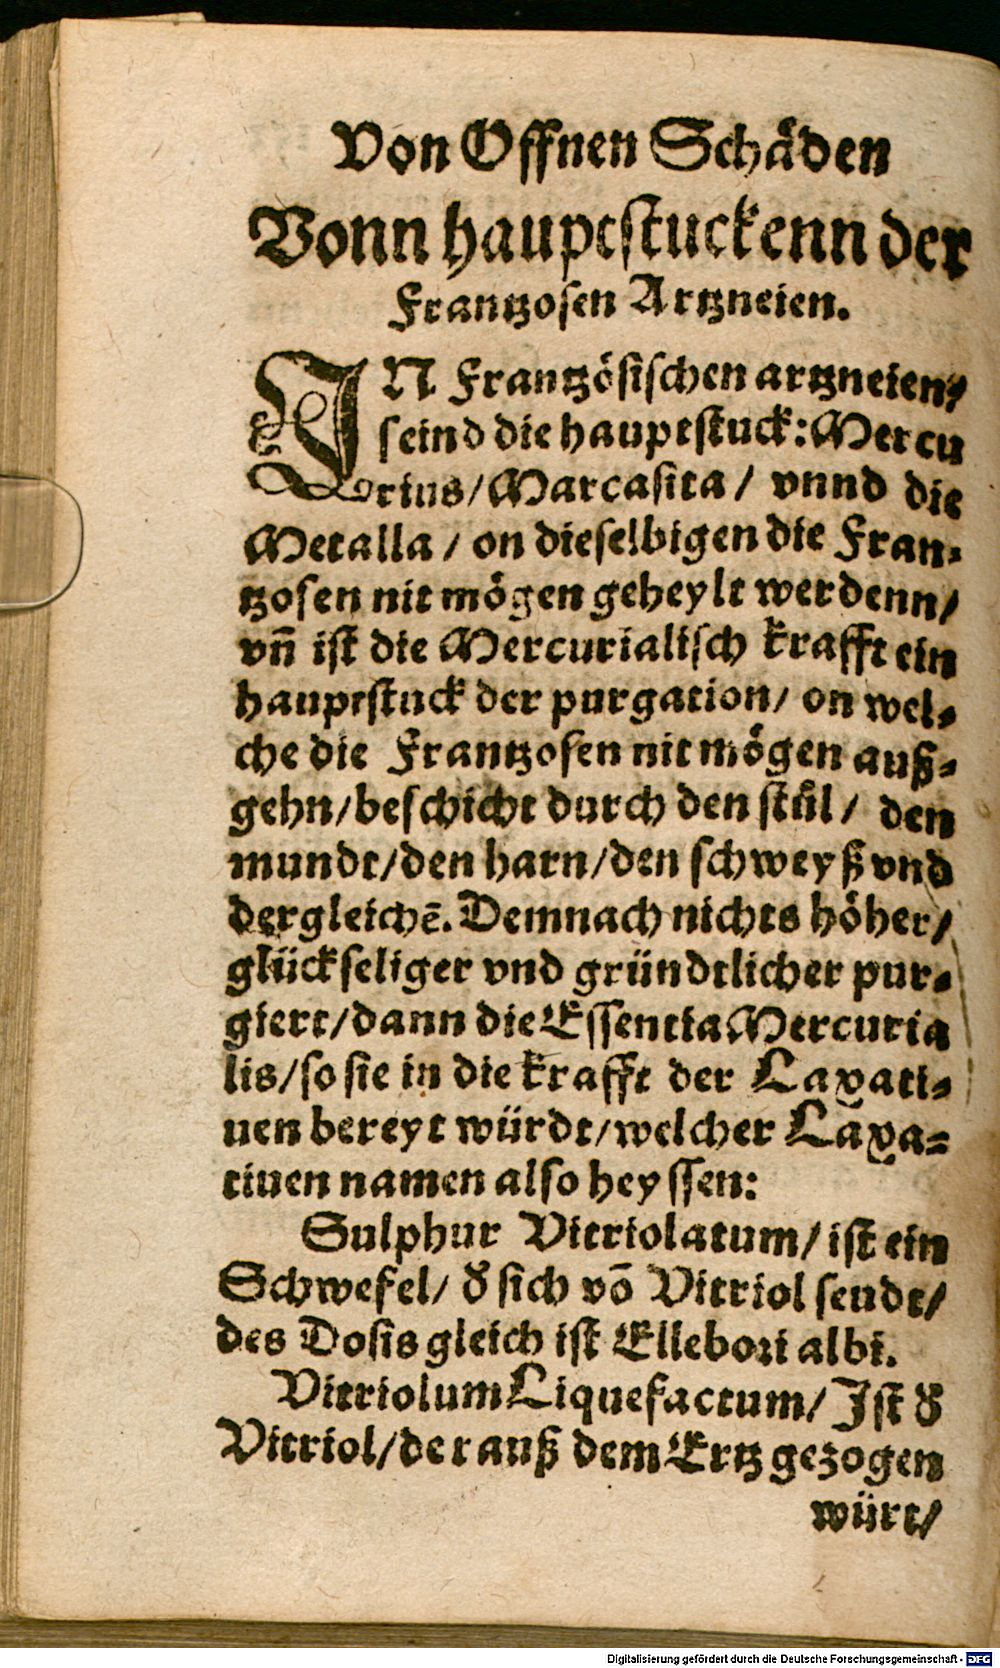 Von Offnen Schäden
Vonn hauptstuckenn der
Frantzosen Artzneien.
IN Frantzösischen artzneien/
seind die hauptstuck: Mercu
rius/ Marcasita/ vnnd die
Metalla/ on dieselbigen die Fran-
tzosen nit mögen geheylt werdenn/
vñ ist die Mercurialisch krafft ein
hauptstuck der purgation/ on wel-
che die Frantzosen nit mögen auß-
gehn/ beschicht durch den stůl/ den
mundt/ den harn/ den schweyß vnd
dergleichẽ. Demnach nichts höher/
glückseliger vnd gründtlicher pur-
giert/ dann die Essentia Mercuria
lis/ so sie in die krafft der Laxati-
uen bereyt würdt/ welcher Laxa-
tiuen namen also heyssen:
Sulphur Vitriolatum/ ist ein
Schwefel/ d̕ sich võ Vitriol seudt/
des Dosis gleich ist Ellebori albi.
Vitriolum Liquefactum/ Ist d̕
Vitriol/ der auß dem Ertz gezogen
würt/
Digitalisierung gefördert durch die Deutsche Forschungsgemeinschaft - DFG